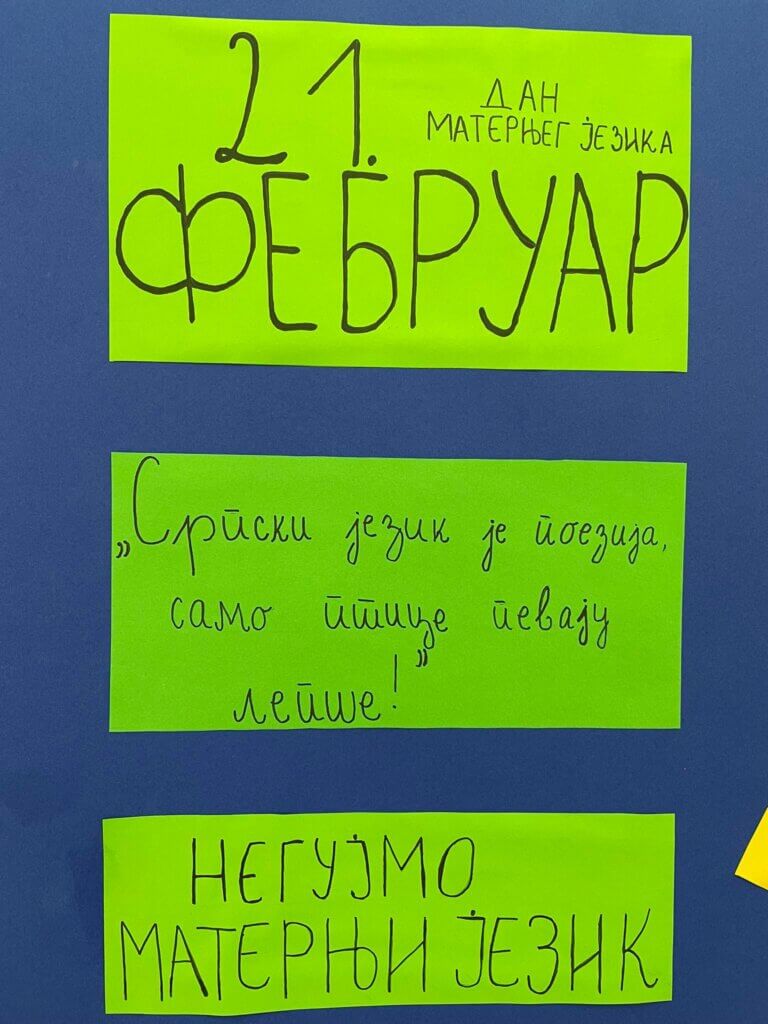 21.
ДАН
МАТЕРЊЕГ ЈЕЗИКА
ФЕБРУАР
„Српски језик је поезија,
само птице певају
лепше!”
НЕГУЈМО
МАТЕРЊИ ЈЕЗИК